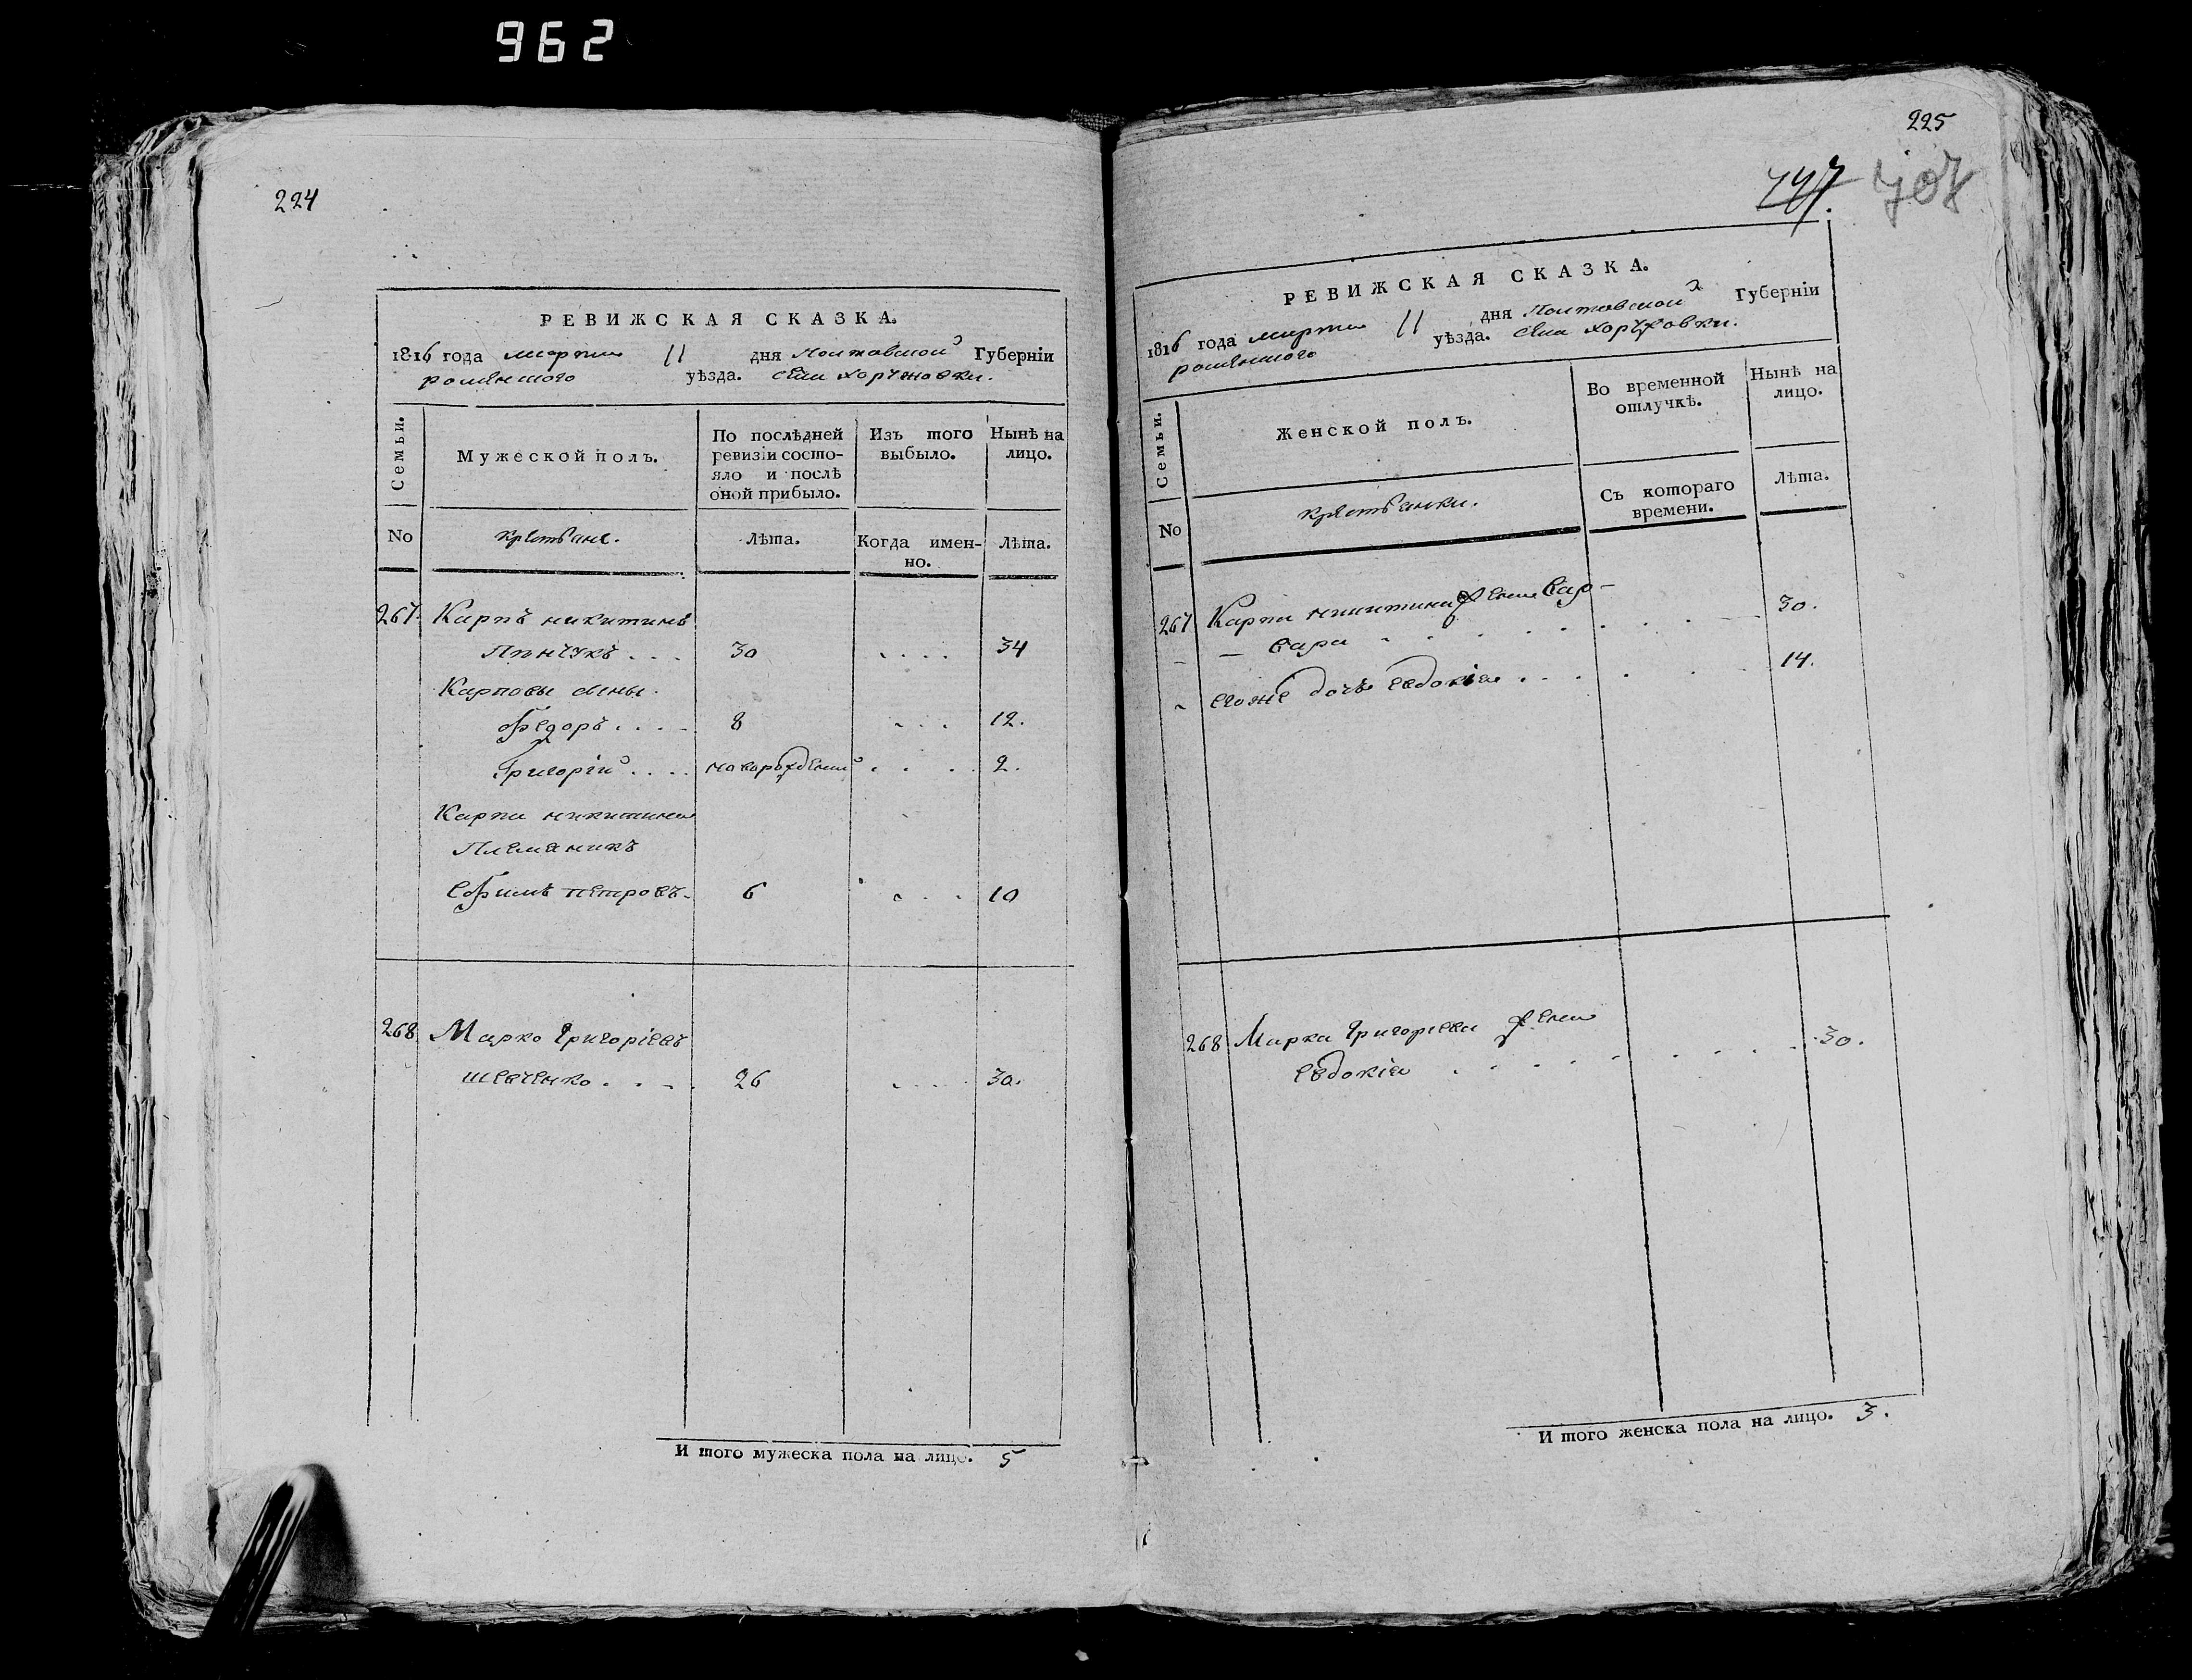 962
224
РЕВИЖСКАЯ СКАЗКА.
1816 года марта 11 дня Полтавской Губерніи
роменского уѣзда. села хоружовки.
Семьи.
Мужеской полъ.
По послѣдней ревизіи состояло и послѣ оной прибыло.
Изъ того выбыло.
Нынѣ на лицо.
No
крестьяне.
Лѣта.
Когда именно.
Лѣта.
267. Карпъ никитинъ
30 34
Карповы сыны.
Федоръ 8 12.
Григорій новорожденый 2.
Карпа никитина
Племяникъ
Ефимъ петровъ 6 10
268 Марко Григоріевъ
шевченко 26 30.
И того мужеска пола на лицо. 5
225
РЕВИЖСКАЯ СКАЗКА.
1816 года марта 11 дня Полтавской Губерніи
роменского уѣзда. села хоружовки.
Семьи.
Женской полъ.
Во временной отлучкѣ.
Нынѣ на лицо.
No
крестьянки.
Съ котораго времени.
Лѣта.
267 Карпа никитина жена Вар-
вара 30.
его же дочь евдокія 14.
268 Марка Григоріева жена
евдокія 30.
И того женска пола на лицо. 3.